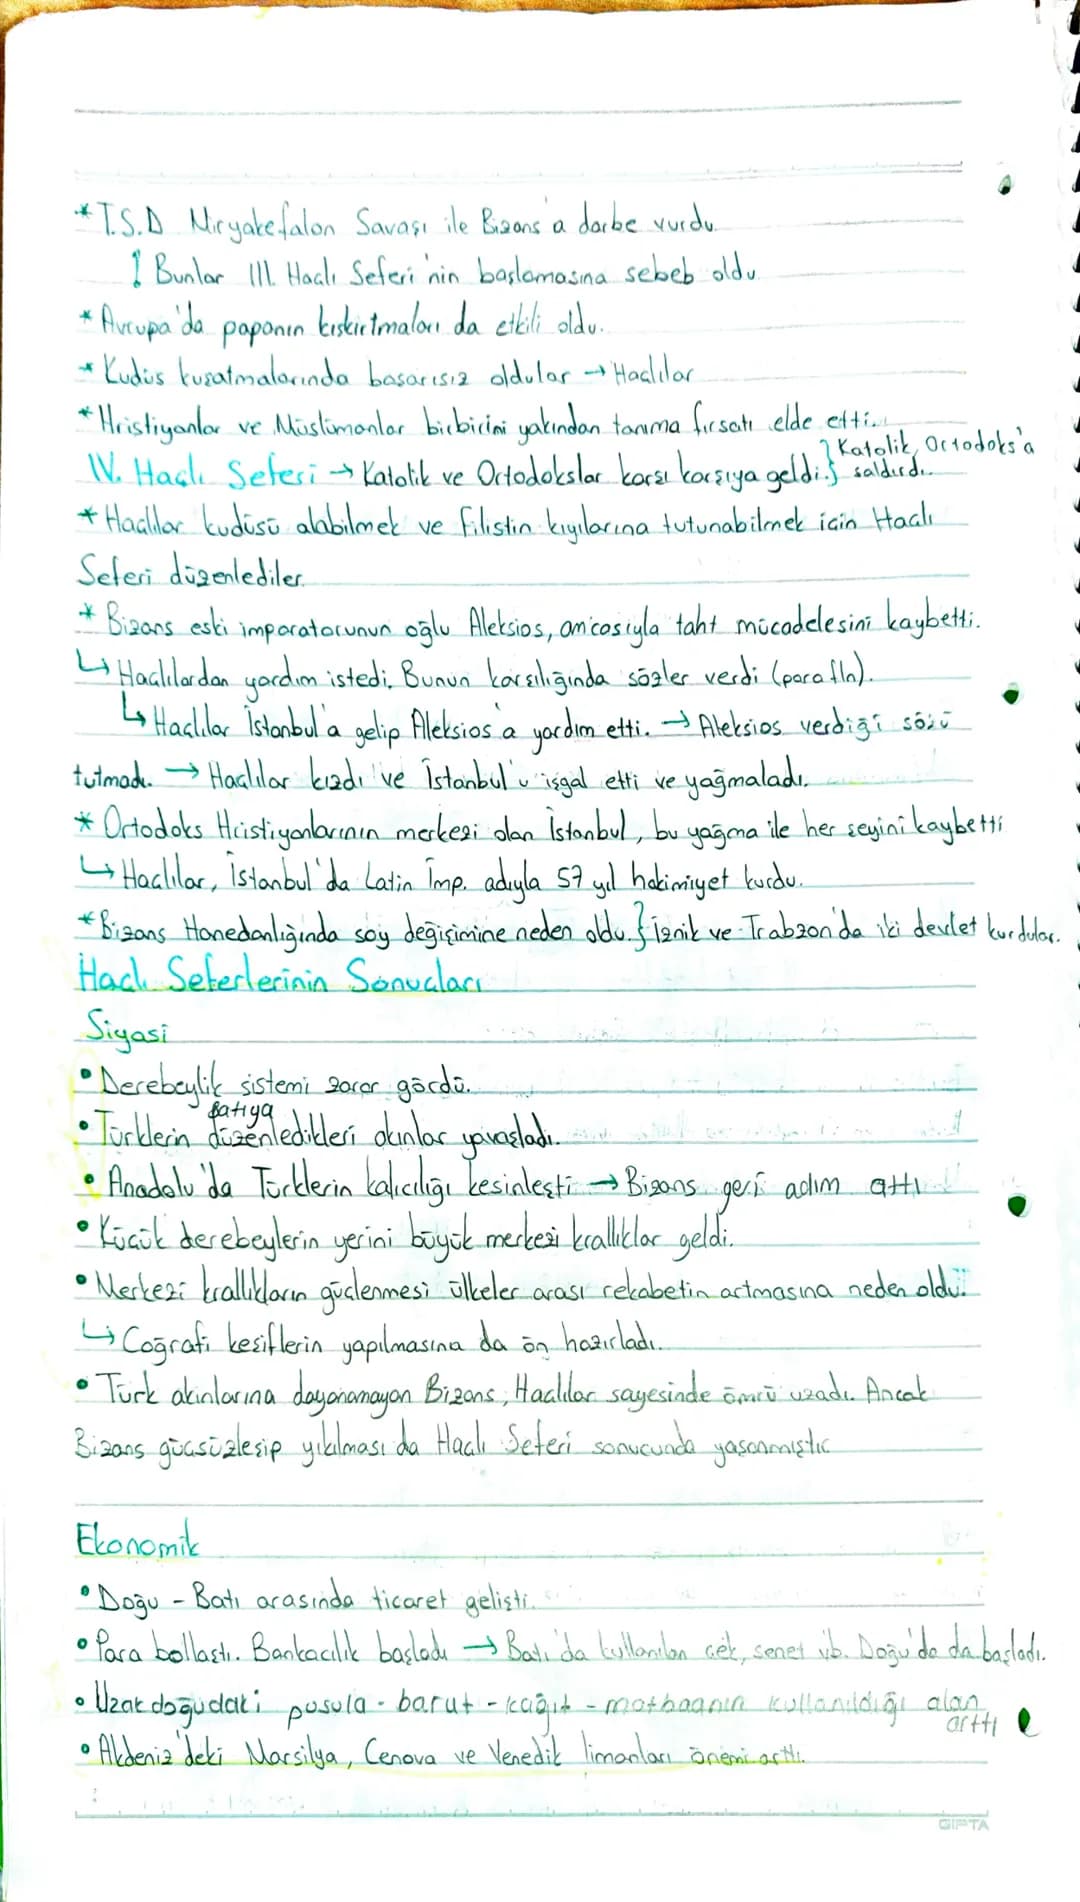 * T.S.D Miryakefalon Savaşı ile Bizans'a darbe vurdu.
↑ Bunlar III. Haçlı Seferi'nin başlamasına sebeb oldu.
* Avrupa'da papanın kışkırtmaları da etkili oldu.
* Kudüs kuşatmalarında başarısız oldular → Haçlılar
* Hristiyanlar ve Müslümanlar birbirini yakından tanıma fırsatı elde etti.
IV. Haçlı Seferi → Katolik ve Ortodokslar karşı karşıya geldi. } Katolik, Ortodoks'a saldırdı.
* Haçlılar kudüsü alabilmek ve Filistin kıyılarına tutunabilmek için Haçlı
Seferi düzenlediler.
* Bizans eski imparatorunun oğlu Aleksios, amcasıyla taht mücadelesini kaybetti.
↳ Haçlılardan yardım istedi. Bunun karşılığında sözler verdi (para fln).
↳ Haçlılar İstanbul'a gelip Aleksios'a yardım etti. → Aleksios verdiği sözü
tutmadı. → Haçlılar kızdı ve İstanbul'u işgal etti ve yağmaladı.
* Ortodoks Hristiyanlarının merkezi olan İstanbul, bu yağma ile her şeyini kaybetti
↳ Haçlılar, İstanbul'da Latin İmp. adıyla 57 yıl hakimiyet kurdu.
* Bizans Hanedanlığında soy değişimine neden oldu. } İznik ve Trabzon'da iki devlet kurdular.
Haçlı Seferlerinin Sonuçları
Siyasi
• Derebeylik sistemi zarar gördü.
Batıya
• Türklerin düzenledikleri akınlar yavaşladı.
• Anadolu'da Türklerin kalıcılığı kesinleşti → Bizans geri adım attı
• Küçük derebeylerin yerini büyük merkezi krallıklar geldi.
• Merkezi krallıkların güçlenmesi ülkeler arası rekabetin artmasına neden oldu.
↳ Coğrafi keşiflerin yapılmasına da ön hazırladı.
• Türk akınlarına dayanamayan Bizans, Haçlılar sayesinde ömrü uzadı. Ancak
Bizans güçsüzleşip yıkılması da Haçlı Seferi sonucunda yaşanmıştır
Ekonomik
• Doğu - Batı arasında ticaret gelişti.
• Para bollaştı. Bankacılık başladı → Batı'da kullanılan çek, senet vb. Doğu'da da başladı.
• Uzak doğudaki pusula - barut - kağıt - matbaanın kullanıldığı alan
arttı
• Akdeniz'deki Marsilya, Cenova ve Venedik limanları önemi arttı.
GIPTA